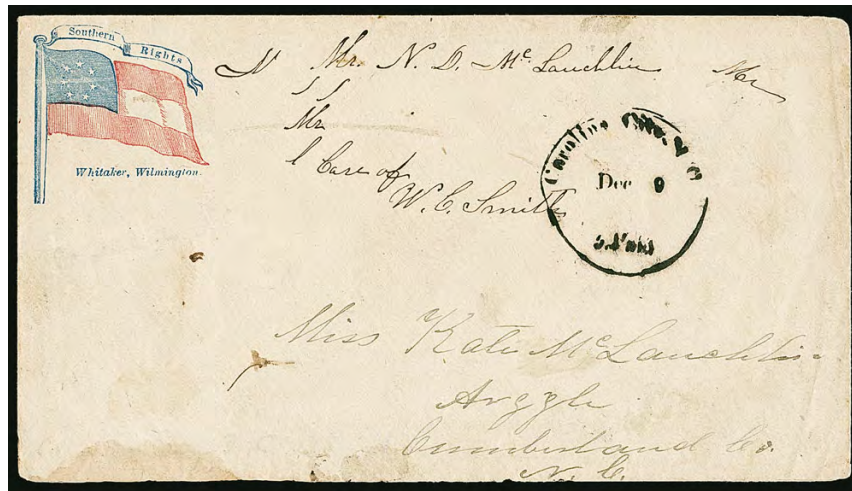 Southern Rights
Whitaker, Wilmington.
N Mr. N. D. McLauchlin Mr
Mr
Care of
W. C. Smith
Carolina City, N C
Dec 9
Miss Kate McLauchlin
Argyle
Cumberland Co.
N. C.